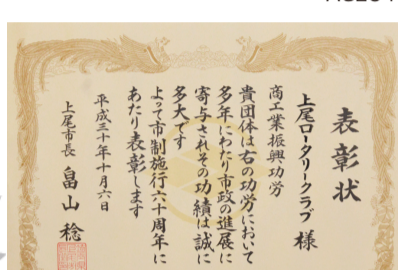 表彰状
上尾ロータリークラブ 様
商工業振興功労
貴団体は右の功労において
多年にわたり市政の進展に
寄与されその功績は誠に
多大です
よって市制施行六十周年に
あたり表彰します
平成三十年十月六日
上尾市長 畠山 稔